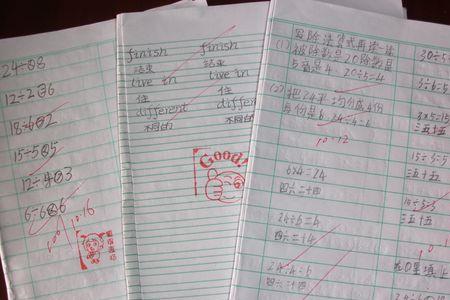 24÷6○8
12÷2○6
18÷6○2
15÷5○5
12÷4○3
6÷6○6
100
10.16
finish finish
结束 结束
live in live in
住 住
different different
不同的 不同的
Good!
(1)被除数是20除数是
5商是4。20÷5=4
(2)把24平均分成4份
每份是6。24÷4=6
10.12
6×4=24
四六二十四
24÷6=4
四六二十四
24÷4=6
30÷5
5÷5=
3×5=15
三五十五
15÷3=5
三五十五
15÷5=3
三五十五
在○里填上